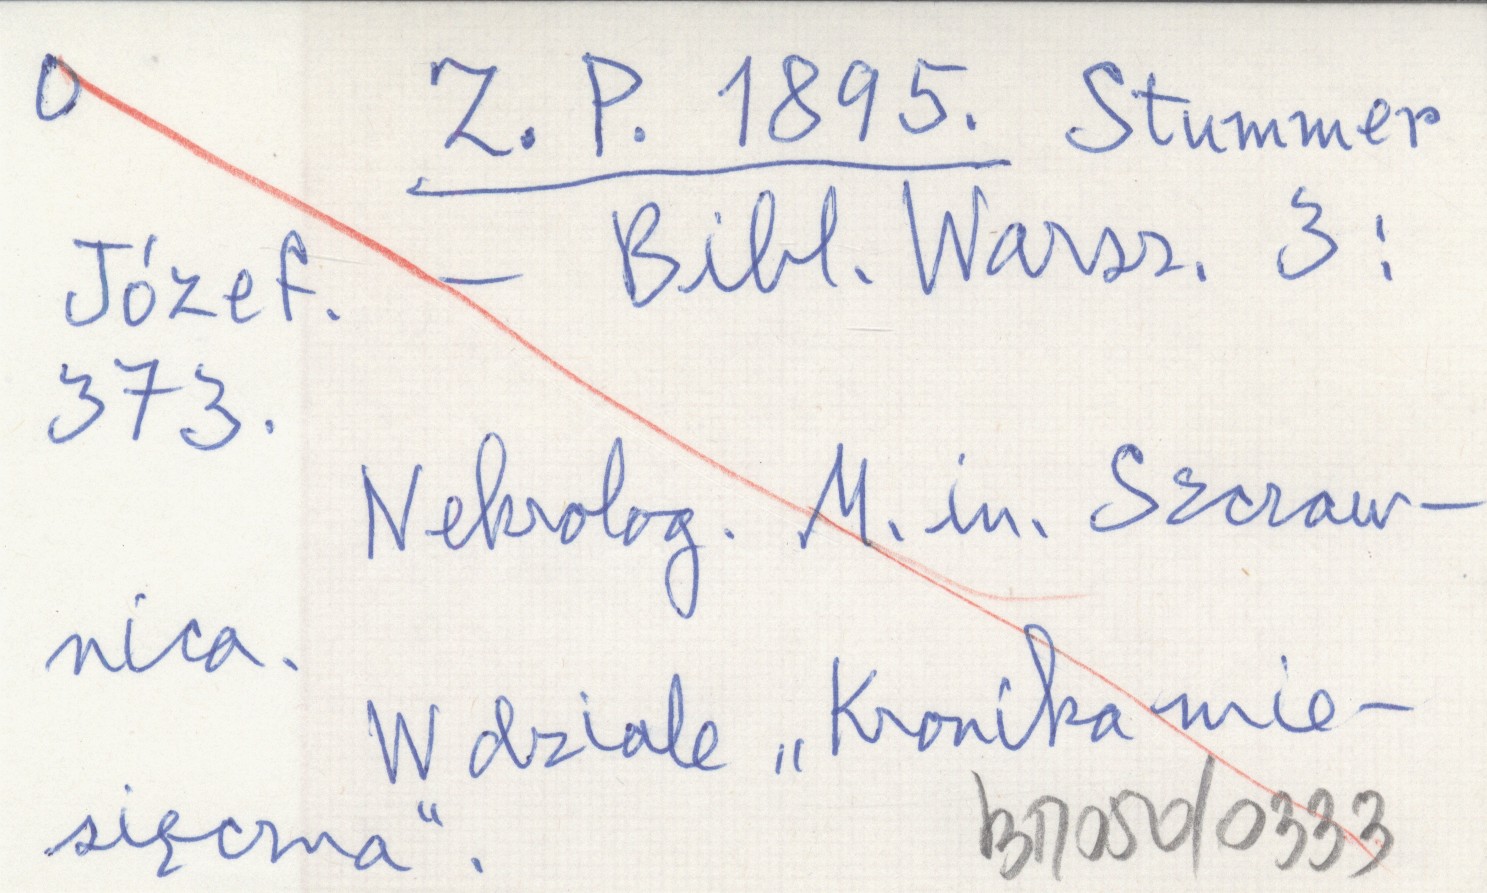 0 Z. P. 1895. Stummer
Józef. — Bibl. Warsz. 3:
373.
Nekrolog. M. in. Szczaw-
nica.
W dziale „Kronika mie-
sięczna".
0333